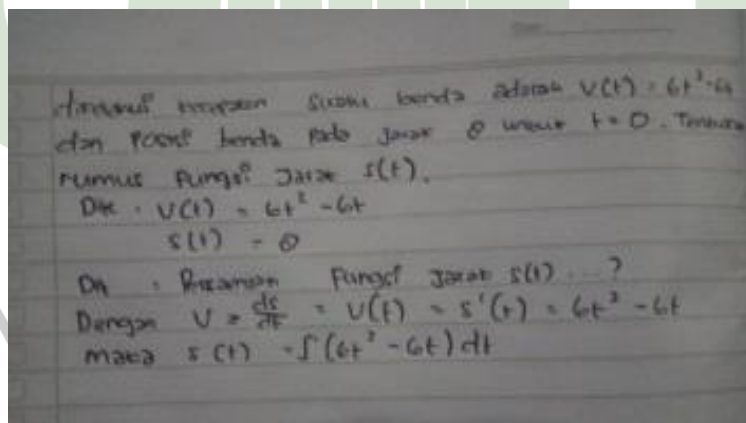 fungsi kecepatan suatu benda adalah V(t) = 6t² - 6t
dan posisi benda pada jarak 0 untuk t = 0. Tentukan
rumus fungsi jarak s(t).
Dik : V(t) = 6t² - 6t
s(t) = 0
Dit : Persamaan fungsi jarak s(t) ...?
Dengan V = ds/dt = V(t) = s'(t) = 6t² - 6t
maka s(t) = ∫(6t² - 6t) dt